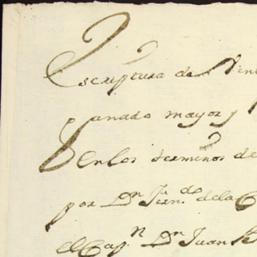 Escriptura de Vent
ganado mayor y
En los terminos de
por Dn Fern.do de la C
el Cap.n Dn Juan